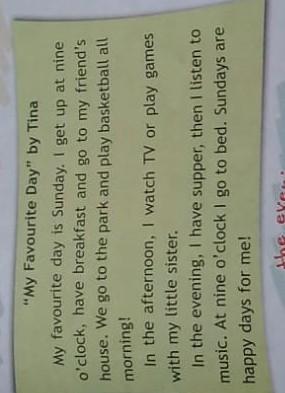 "My Favourite Day" by Tina
My favourite day is Sunday. I get up at nine
o'clock, have breakfast and go to my friend's
house. We go to the park and play basketball all
morning!
In the afternoon, I watch TV or play games
with my little sister.
In the evening, I have supper, then I listen to
music. At nine o'clock I go to bed. Sundays are
happy days for me!
the